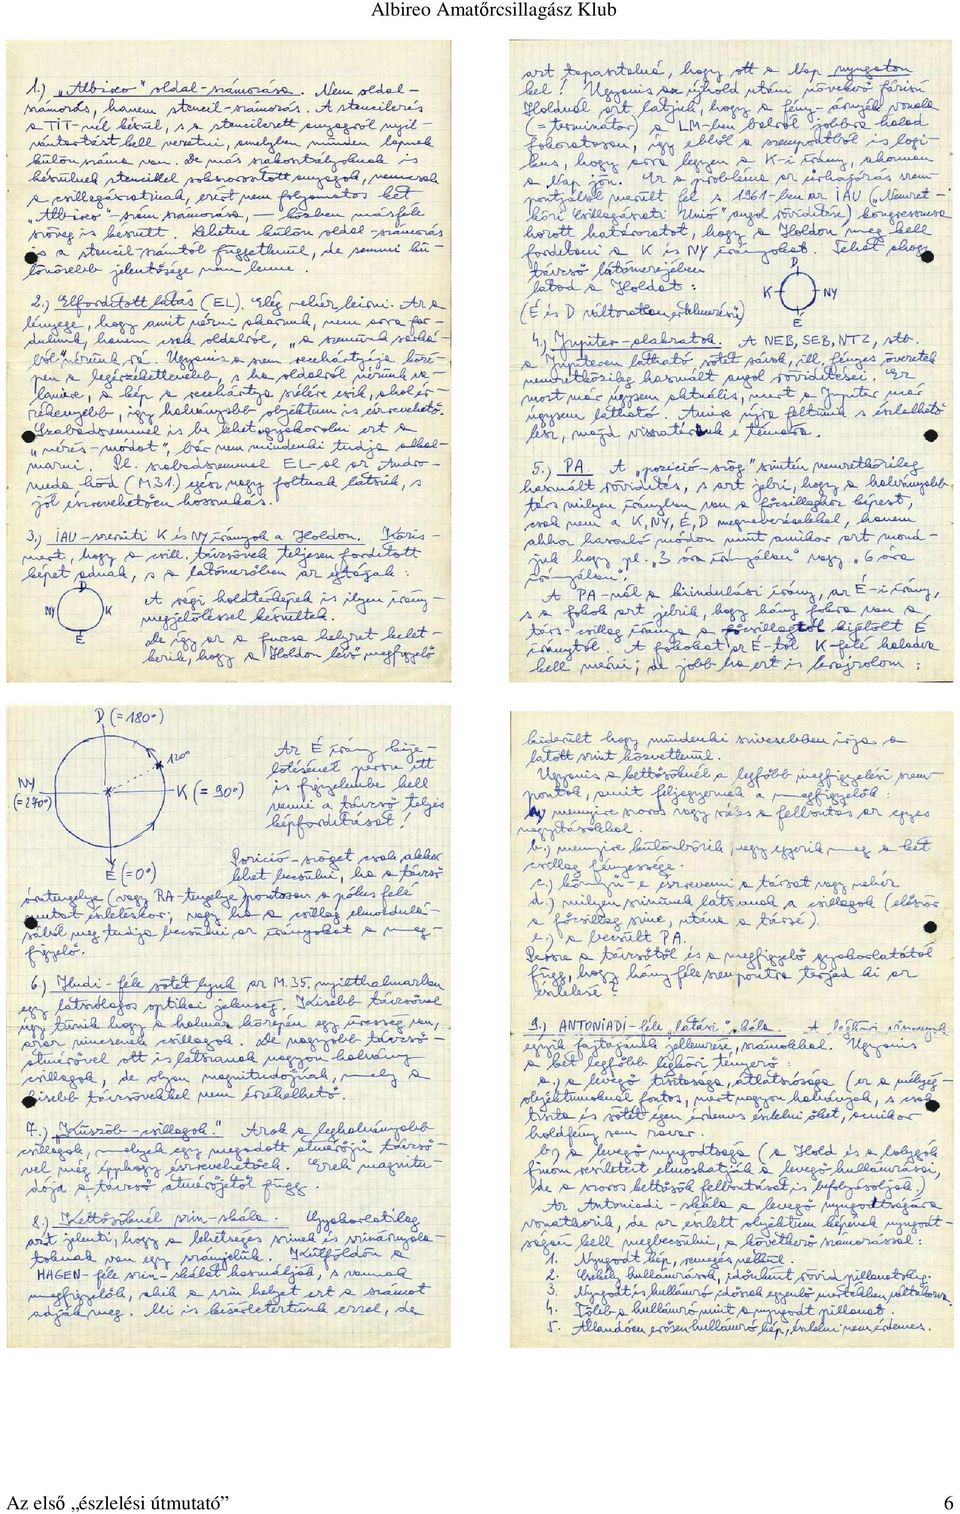 Albireo Amatőrcsillagász Klub
1.) "Albireo" oldal-számozása. Nem oldal-
számozás, hanem stencil-számozás. A stencilezés
a TIT-nél készül, s a stencilezett anyagról nyil-
vántartást kell vezetni, amelyben minden lapnak
külön száma van. De más szakosztályoknak is
készülnek stencillel sokszorosított anyagok, nemcsak
a csillagászatinak, ezért nem folyamatos két
"Albireo"-szám számozása, — közben másféle
szöveg is készült. Lehetne külön oldal-számozás
is a stencil-számtól függetlenül, de semmi kü-
lönösebb jelentősége nem lenne.
2.) Elfordított látás (EL). Elég nehéz leírni. Az a
lényege, hogy amit nézni akarunk, nem arra for-
dulunk, hanem csak oldalról, "a szemünk sarká-
ból" nézünk rá. Ugyanis a szem recehártyája köze-
pén a legérzéketlenebb, s ha oldalról nézünk va-
lamire, a kép a recehártya szélére esik, ahol ér-
zékenyebb, így halványabb objektum is észrevehető.
Szabadszemmel is be lehet gyakorolni ezt a
"nézés-módot", bár nem mindenki tudja alkal-
mazni. Pl. szabadszemmel EL-al az Andro-
meda köd (M31.) egész nagy foltnak látszik, s
jól észrevehetően hosszúkás.
3.) IAU-szerinti K és NY irányok a Holdon. Közis-
mert, hogy a csill. távcsövek teljesen fordított
képet adnak, s a látómezőben az égtájak:
D
NY K
É
A régi holdtérképek is ilyen irány-
megjelöléssel készültek.
De így az a furcsa helyzet kelet-
kezik, hogy a Holdon lévő megfigyelő
azt tapasztalná, hogy ott a Nap nyugaton
kel! Ugyanis az újhold utáni növekvő fázisú
Holdnál azt látjuk, hogy a fény-árnyék vonala
(= terminátor) a LM-ben balról jobbra halad
fokozatosan, így ebből a szempontból is logi-
kus, hogy arra legyen a K-i irány, ahonnan
a Nap jön. Ez a probléma az űrhajózás szem-
pontjából merült fel s 1961-ben az IAU ("Nemzet-
közi Csillagászati Unió" angol rövidítése) kongresszusa
hozott határozatot, hogy a Holdon meg kell
fordítani a K és NY irányokat. Tehát ahogy
távcső látómezejében
látod a Holdat:
D
K NY
É
(É és D változatlan értelmezésű)
4.) Jupiter-alakzatok. A NEB, SEB, NTZ, stb.
a Jupiteren látható sötét sávok, ill. fényes övezetek
nemzetközileg használt angol rövidítései. Ez
most már úgysem aktuális, mert a Jupiter már
úgysem látható. Amire újra feltűnik s észlelhető
lesz, majd visszatérünk e témára.
5.) PA. A "pozíció-szög" szintén nemzetközileg
használt rövidítés, s azt jelzi, hogy a halványabb
társ milyen irányban van a főcsillaghoz képest,
csak nem a K, NY, É, D megnevezésekkel, hanem
ahhoz hasonló módon mint amikor azt mond-
juk hogy pl. "3 óra irányában" vagy "6 óra
irányában".
A PA-nál a kiindulási irány, az É-i irány,
s a fokok azt jelzik, hogy hány fokra van a
társ-csillag iránya a főcsillagtól kijelölt É
iránytól. A fokokat az É-tól K-felé haladva
kell mérni; de jobb ha ezt is lerajzolom:
D (=180°)
120°
NY
(=270°)
K (=90°)
É (=0°)
Az É irány kije-
lölésénél persze itt
is figyelembe kell
venni a távcső teljes
képfordítását!
Pozíció-szöget csak akkor
lehet becsülni, ha a távcső
óratengelye (vagy RA-tengelye) pontosan a pólus felé
mutat észleléskor, vagy ha a csillag elmozdulá-
sából meg tudja becsülni az irányokat a meg-
figyelő.
6.) Hudi-féle sötét lyuk az M.35, nyílthalmazban
egy látszólagos optikai jelenség. Kisebb távcsővel
úgy tűnik hogy a halmaz közepén egy üresség van,
azaz nincsenek csillagok. De nagyobb távcső-
átmérővel ott is látszanak nagyon halvány
csillagok, de olyan magnitudójúak, mely a
kisebb távcsövekkel nem érzékelhető.
7.) "Küszöb-csillagok." Azok a leghalványabb
csillagok, melyek egy megadott átmérőjű távcső-
vel még épphogy észrevehetőek. Ezek magnitu-
dója a távcső átmérőjétől függ.
8.) Kettősöknél szín-skála. Gyakorlatilag
azt jelenti, hogy a lehetséges színek és színárnyala-
toknak van egy számjelük. Külföldön a
HAGEN-féle szín-skálát használják, s vannak
megfigyelők, akik a szín helyett ezt a számot
adják meg. Mi is kísérleteztünk ezzel, de
kiderült hogy mindenki szívesebben írja a
látott színt közvetlenül.
Ugyanis a kettősöknél a legfőbb megfigyelési szem-
pontok, amit feljegyeznek a megfigyelők:
a.) mennyire szoros vagy réses a felbontás az egyes
nagyításokkal.
b.) mennyire különbözik, vagy egyezik meg a két
csillag fényessége.
c.) könnyű-e észrevenni a társat vagy nehéz
d.) milyen színűnek látszanak a csillagok (először
a főcsillag színe, utána a társé).
e.) a becsült PA.
Persze a távcsőtől és a megfigyelő gyakorlatától
függ, hogy hányféle szempontra terjed ki az
észlelése!
9.) ANTONIADI-féle "látási" skála. A légköri viszonyok
egyik fajtájának jellemzése, számokkal. Ugyanis
a két legfőbb légköri tényező:
a.) a levegő tisztasága, átlátszósága (ez a mélyég-
objektumoknál fontos, mert nagyon halványak, s csak
tiszta és sötét égen érdemes észlelni őket, amikor
holdfény sem zavar.
b.) a levegő nyugodtsága (a Hold és a bolygók
finom részleteit elmoshatják a levegő hullámzásai,
de a szoros kettősök felbontását is befolyásolják.)
Az Antoniadi-skála a levegő nyugodtságára
vonatkozik, de az észlelt objektum képének nyugodt-
ságán kell megbecsülni, a következő számozással:
1. Nyugodt kép, remegés nélkül.
2. Enyhe hullámzások, időnként rövid pillanatokig.
3. Nyugodt és hullámzó időszak egyenlő mértékben váltakozva.
4. Több a hullámzó mint a nyugodt pillanat.
5. Állandóan erősen hullámzó kép, észlelni nem érdemes.
Az első „észlelési útmutató” 6